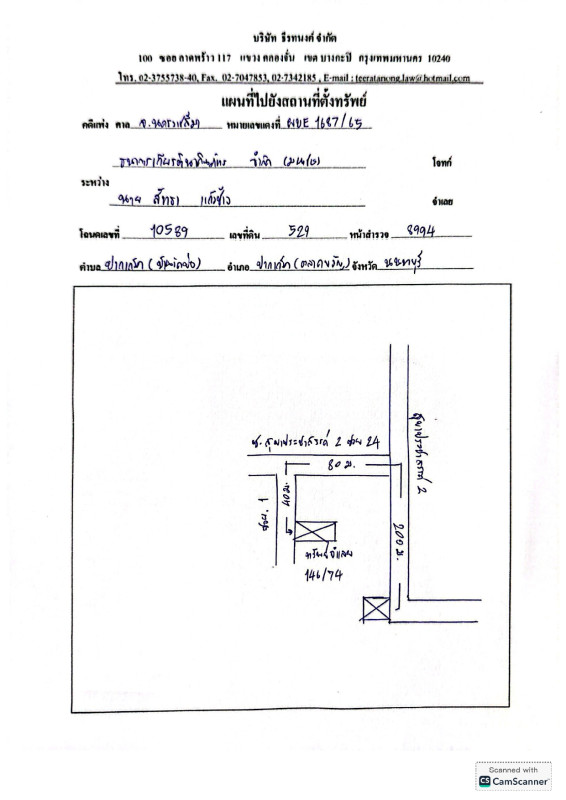 บริษัท ธีรทนงค์ จำกัด
100 ซอย ลาดพร้าว 117 แขวง คลองจั่น เขต บางกะปิ กรุงเทพมหานคร 10240
โทร. 02-3755738-40, Fax. 02-7047853, 02-7342185 , E-mail : teeratanong.law@hotmail.com
แผนที่ไปยังสถานที่ตั้งทรัพย์
คดีแพ่ง ศาล จ. หมายเลขแดงที่ ผบE 1687/65
ธนาคารเกียรตินาคินภัทร จำกัด (มหาชน) โจทก์
ระหว่าง
นาย แก้วขาว จำเลย
โฉนดเลขที่ 10589 เลขที่ดิน 529 หน้าสำรวจ 8994
ตำบล ปากเกร็ด (บ้านใหม่) อำเภอ ปากเกร็ด (ตลาดขวัญ) จังหวัด นนทบุรี
ซ. สุขาประชาสรรค์ 2 ซอย 24
80 ม.
สุขาประชาสรรค์ 2
40 ม.
ซอย. 1
200 ม.
ทรัพย์จำเลย
146/74
Scanned with
CS CamScanner